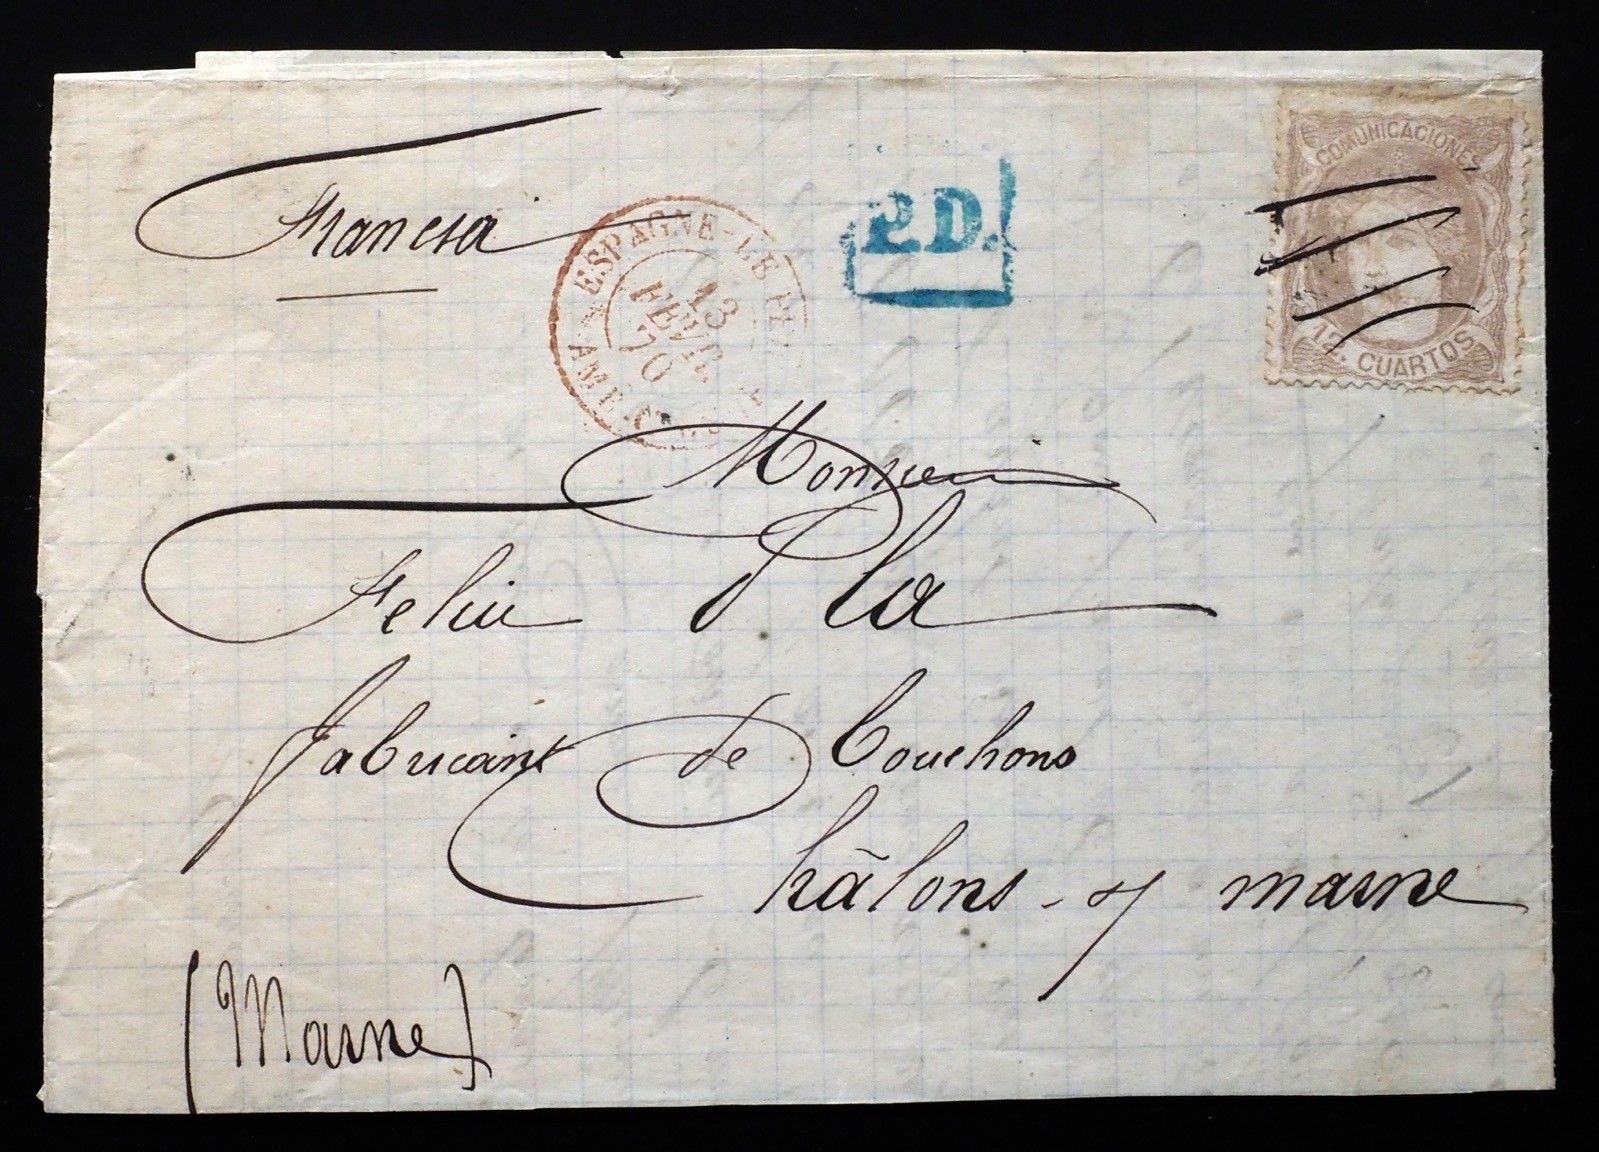 COMUNICACIONES
12. CUARTOS
P.D.
Francia
ESPAGNE-LE PE
13
FEVR
70
AMB.
Monsieur
Feliu Pla
fabricant de Bouchons
Châlons-s/ marne
(Marne)